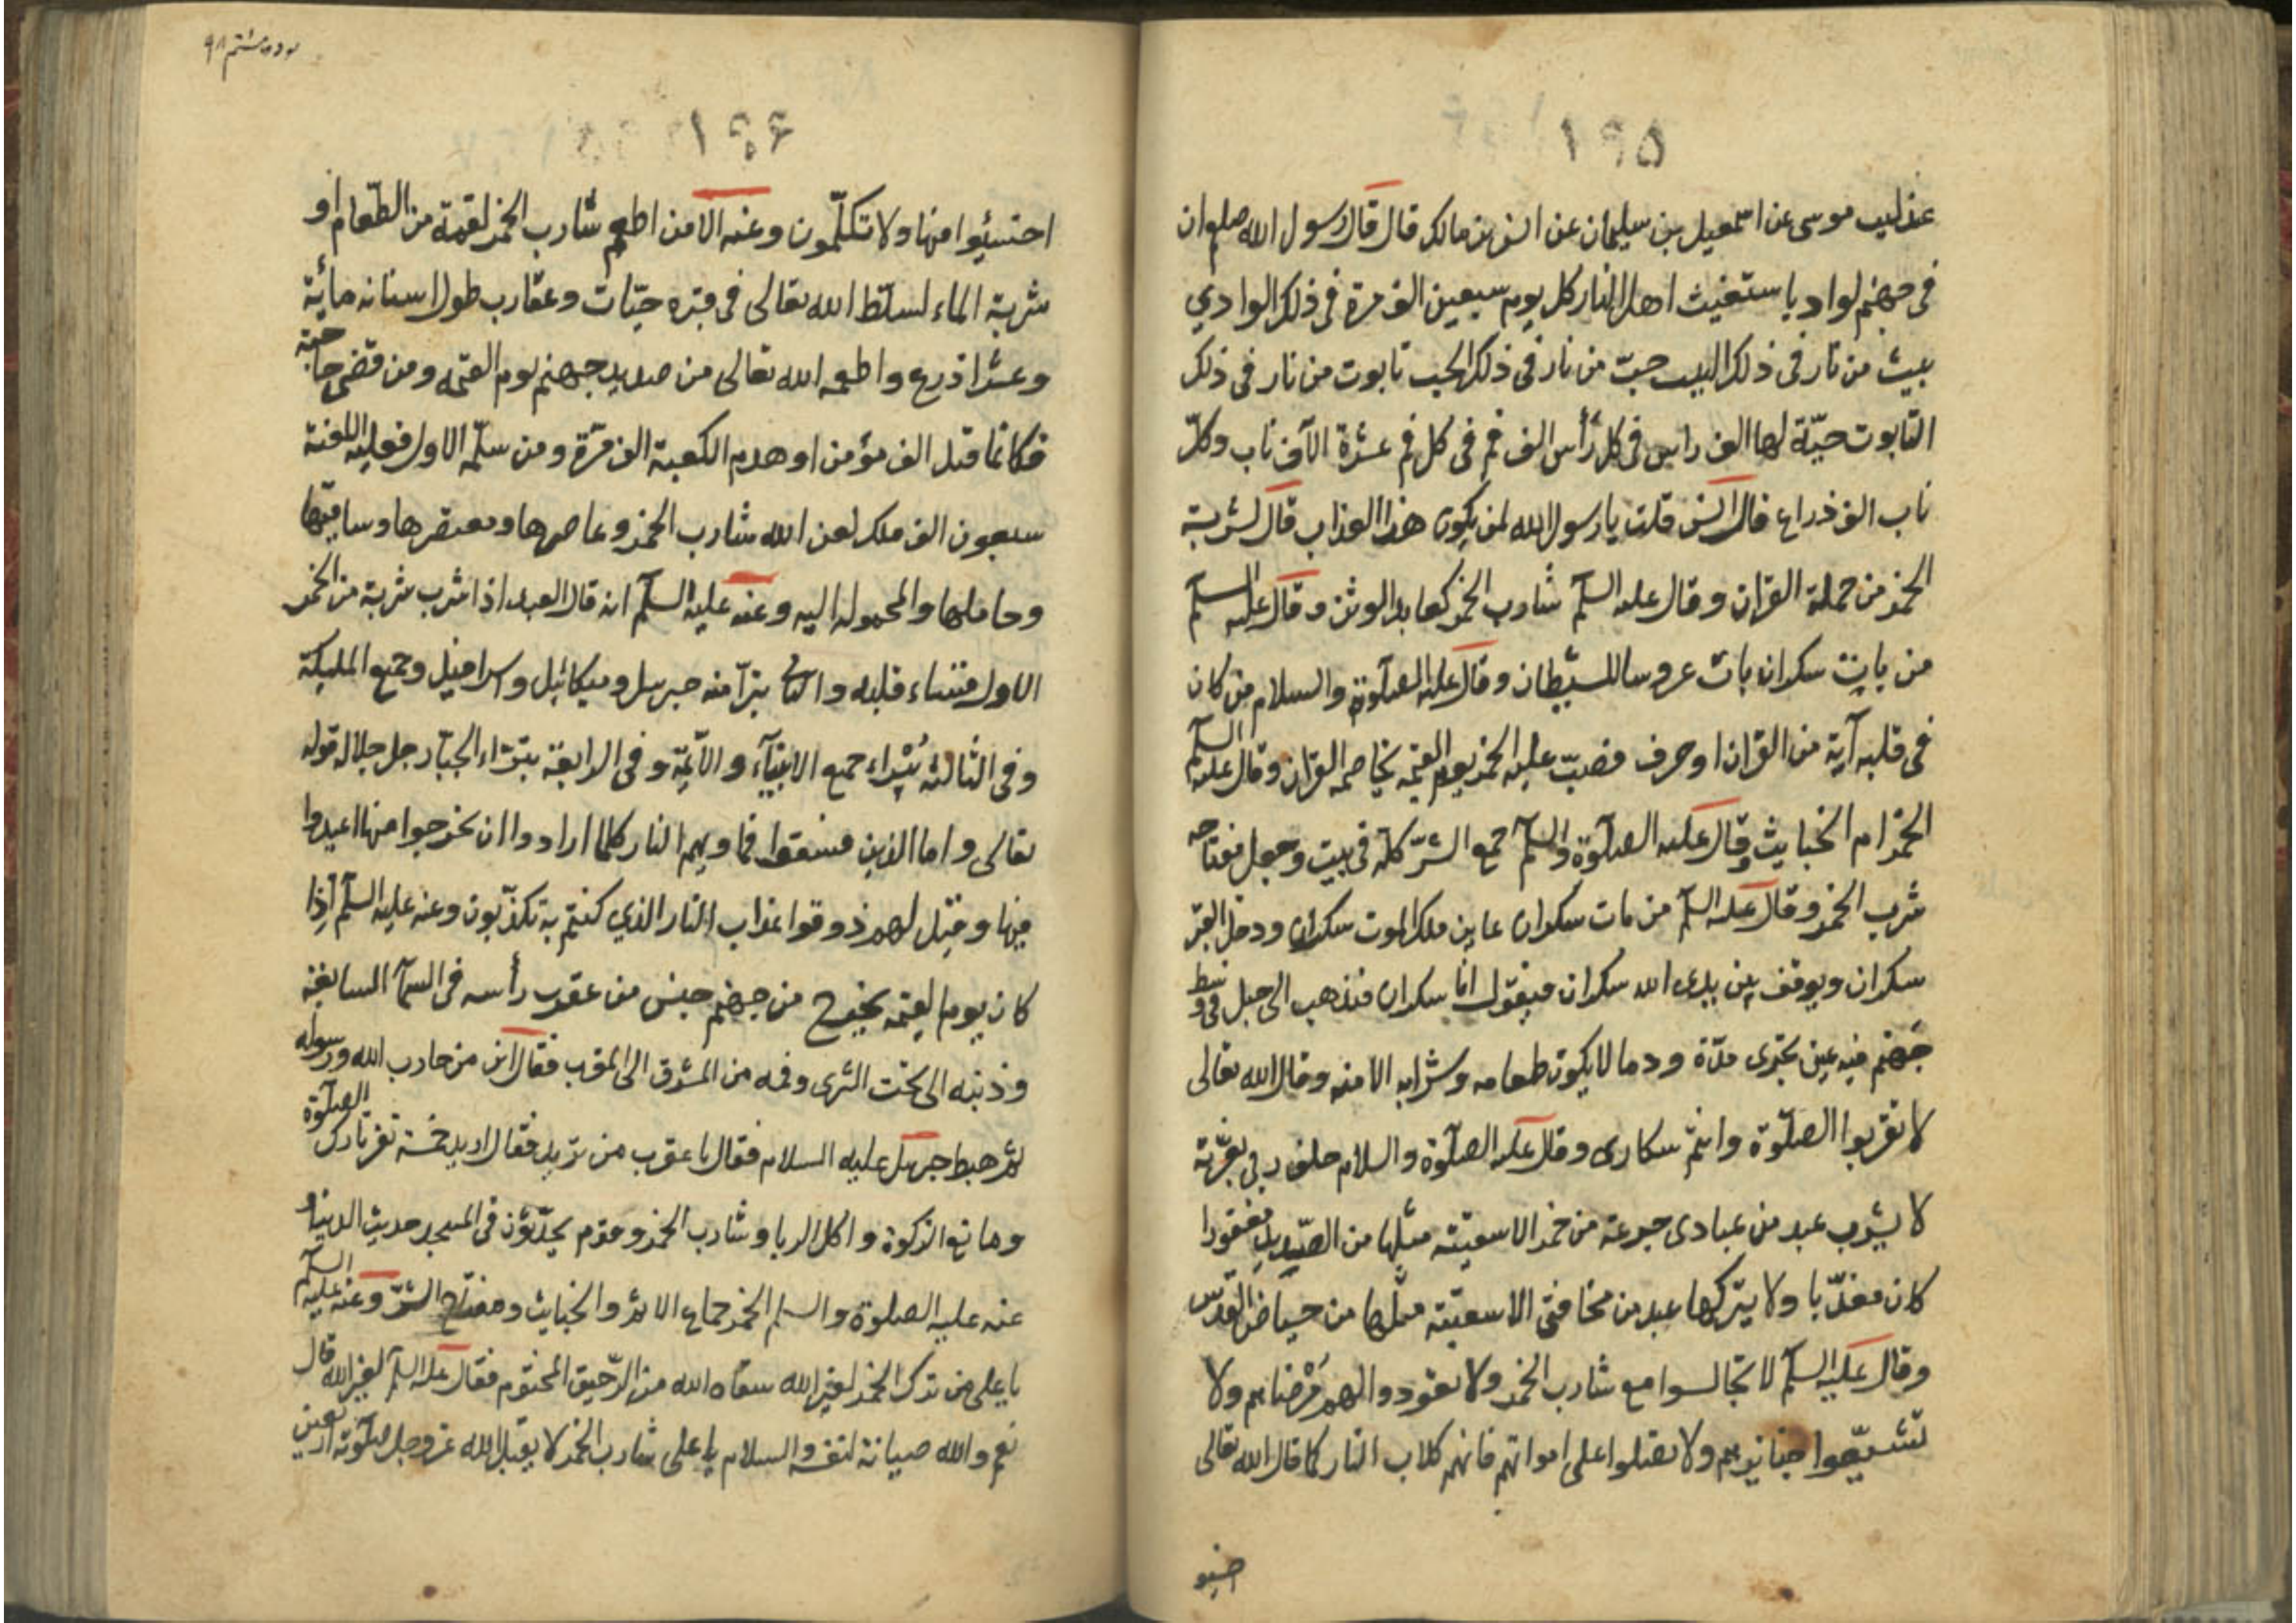 ١٩٥
عن ليث موسى عن اسمعيل بن سليمان عن انس بن مالك قال قال رسول الله صلعم ان
فى جهنم لواديا ستغيث اهل النار كل يوم سبعين الف مرة فى ذلك الوادي
بيت من نار فى ذلك البيت جبّ من نار فى ذلك الجب تابوت من نار فى ذلك
التابوت حيّة لها الف راس فى كل رأس الف فم فى كل فم عشرة الآف ناب وكلّ
ناب الف ذراع قال انس قلت يا رسول الله لمن يكون هذا العذاب قال لشربة
الخمر من حملة القران وقال عليه السلم شارب الخمر كعابد الوثن وقال عليه السلم
من بات سكران بات عروسا للشيطان وقال عليه الصلوة والسلام من كان
فى قلبه آية من القران او حرف فصبّ عليه الخمر يوم القيمة يخاصمه القران وقال عليه السلم
الخمر ام الخبايث وقال عليه الصلوة والسلم جمع الشرّ كله فى بيت وجعل مفتاحه
شرب الخمر وقال عليه السلم من مات سكران عاين ملك الموت سكران ودخل القبر
سكران ويوقف بين يدى الله سكران فيقول انا سكران فذهب الى جبل فى وسط
جهنم فيه عين تجرى مدّة ودما لا يكون طعامه وشرابه الا منه وقال الله تعالى
لا تقربوا الصلوة وانتم سكارى وقال عليه الصلوة والسلام حلف ربي بعزّته
لا يشرب عبد من عبادى جرعة من خمر الا سقيته مثلها من الصّديد مغفورا
كان معذّبا ولا يتركها عبد من مخافتى الا سقيته مثلها من حياض القدس
وقال عليه السلم لا تجالسوا مع شارب الخمر ولا تعودوا لهم مرضاهم ولا
تشيّعوا جنايزهم ولا تصلوا على امواتهم فانهم كلاب النار كما قال الله تعالى
اخسيو
١٩٦
احتسئوا منها ولا تكلّمون وعنه الا من اطعم شارب الخمر لقمة من الطّعام او
شربة الماء لسلّط الله تعالى فى قبره حيّات وعقارب طول اسنانه مأية
وعشر اذرع واطعمه الله تعالى من صديد جهنم يوم القيمه ومن قضى حاجته
فكانما قتل الف مؤمن او هدم الكعبة الف مرّة ومن سلّم الاول فعليه اللعنة
سبعون الف ملك لعن الله شارب الخمر وعاصرها ومعتصرها وساقيها
وحاملها والمحموله اليه وعنه عليه السلم انه قال العبد اذا شرب شربة من الخمر
الاول قساء قلبه والثانى تبرّآ منه جبريل وميكائيل واسرافيل وجميع المليكة
وفى الثالثة تبرّاء جميع الانبيآء والآئمّة وفى الرابعة تبرّاء الجبّار جل جلاله قوله
تعالى واما الذين فسقوا فماويهم النار كلما ارادوا ان يخرجوا منها اعيدوا
فيها وقيل لهم ذوقوا عذاب النار الذي كنتم به تكذّبون وعنه عليه السلم اذا
كان يوم القيمة يخرج من جهنم جنس من عقرب رأسه فى السمآ السابعة
وذنبه الى تحت الثرى وفمه من المشرق الى المغرب فقال اين من حارب الله ورسوله
ثم هبط جبرئيل عليه السلام فقال يا عقرب من تريد فقال اريد خمسة نفر تارك الصلوة
ومانع الزكوة واكل الربا وشارب الخمر وقوم يحدّثون فى المسجد حديث الدنيا و
عنه عليه الصلوة والسلم الخمر جماع الاثم والخبايث ومفتاح الشرّ وعنه عليه السلم
يا على من ترك الخمر لغير الله سقاه الله من الرّحيق المختوم فقال عليه السلم لغير الله قال
نعم والله صيانة لنفسه والسلام يا على شارب الخمر لا يقبل الله عز وجل صلوته اربعين